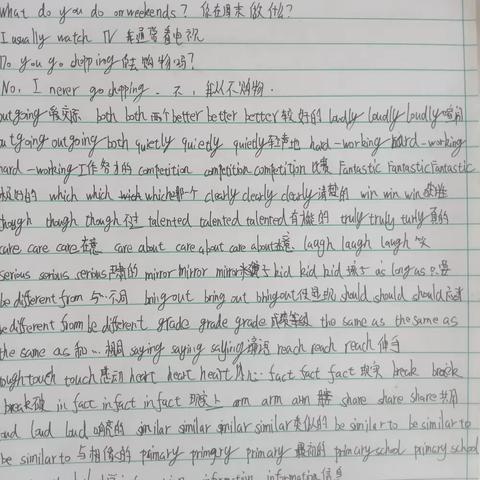 What do you do on weekends? 你在周末做什么?
I usually watch TV 我通常看电视
Do you go shopping 你去购物吗?
No, I never go shopping. 不,我从不购物.
outgoing 爱交际 both both 两个 better better better 较好的 loudly loudly loudly 喧闹
outgoing outgoing both quietly quietly quietly 轻声地 hard-working hard-working
hard-working 工作努力的 competition competition competition 比赛 Fantastic Fantastic Fantastic
极好的 which which which which 哪个 clearly clearly clearly 清楚的 win win win 获胜
though though though 不过 talented talented talented 有才能的 truly truly turly 真的
care care care 在意 care about care about care about 在意 laugh laugh laugh 笑
serious serious serious 严肃的 mirror mirror mirror kid kid kid 孩子 as long as 只要
be different from 与…不同 bring out bring out bring out 使显现 should should should 应该
be different from be different grade grade grade 成绩等级 the same as the same as
the same as 和…相同 saying saying saying 谚语 reach reach reach 伸手
touch touch touch 感动 heart heart heart 内心 fact fact fact 现实 break break
break 破 in fact in fact in fact 事实上 arm arm arm 臂 share share share 共用
loud loud loud 响亮的 similar similar similar similar 类似的 be similar to be similar to
be similar to 与相像的 primary primary primary 最初的 primary school primary school
information information 信息